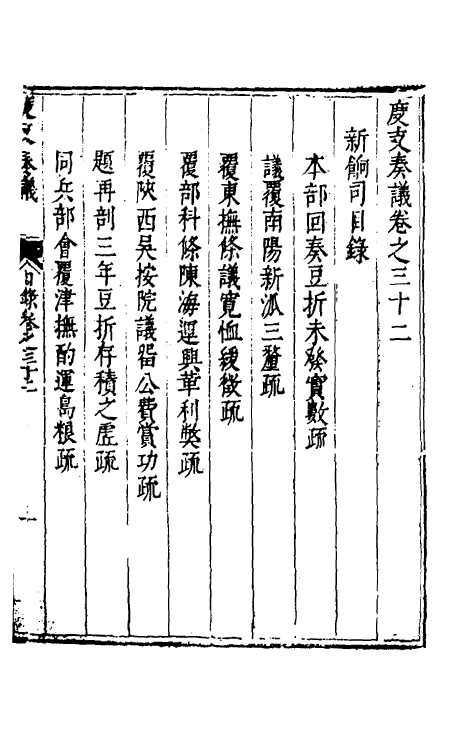 度支奏議卷之三十二
新餉司目錄
本部回奏豆折未發實數疏
議覆南陽新派三釐疏
覆東撫條議寬恤緩徵疏
覆部科條陳海運興革利弊疏
覆陝西吳按院議留公費賞功疏
題再剖三年豆折存積之虛疏
同兵部會覆津撫酌運島糧疏
度支奏議
目錄卷之三十二
一